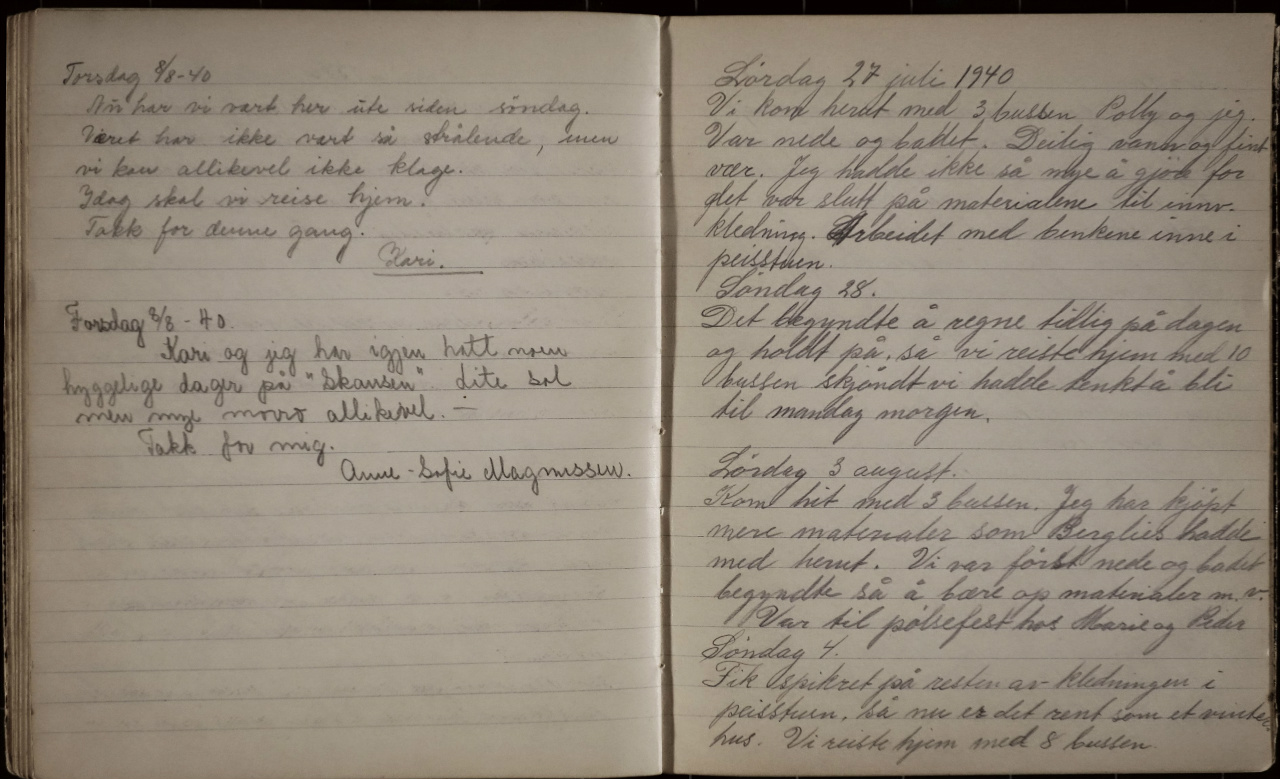 Torsdag 8/8-40
Nu har vi vært her ute siden söndag.
Været har ikke vært så strålende, men
vi kan allikevel ikke klage.
Idag skal vi reise hjem.
Takk for denne gang.
Kari.
Torsdag 8/8 - 40.
Kari og jeg har igjen hatt noen
hyggelige dager på "Skansen" lite sol
men mye moro allikevel. —
Takk for mig.
Anne-Sofie Magnussen.
Lördag 27 juli 1940
Vi kom herut med 3 bussen Polly og jeg.
Var nede og badet. Deilig vann og fint
vær. Jeg hadde ikke så mye å gjöre for
det var slutt på materialene til innv.
kledning. Arbeidet med benkene inne i
peisstuen.
Söndag 28.
Det begyndte å regne tidlig på dagen
og holdt på, så vi reiste hjem med 10
bussen skjöndt vi hadde tenkt å bli
til mandag morgen.
Lördag 3 august.
Kom hit med 3 bussen. Jeg har kjöpt
mere materialer som Berglies hadde
med herut. Vi var först nede og badet
begyndte så å bære op materialer m.v.
Var til pölsefest hos Marie og Peder
Söndag 4.
Fik spikret på resten av kledningen i
peisstuen, så nu er det rent som et vinter
hus. Vi reiste hjem med 8 bussen.